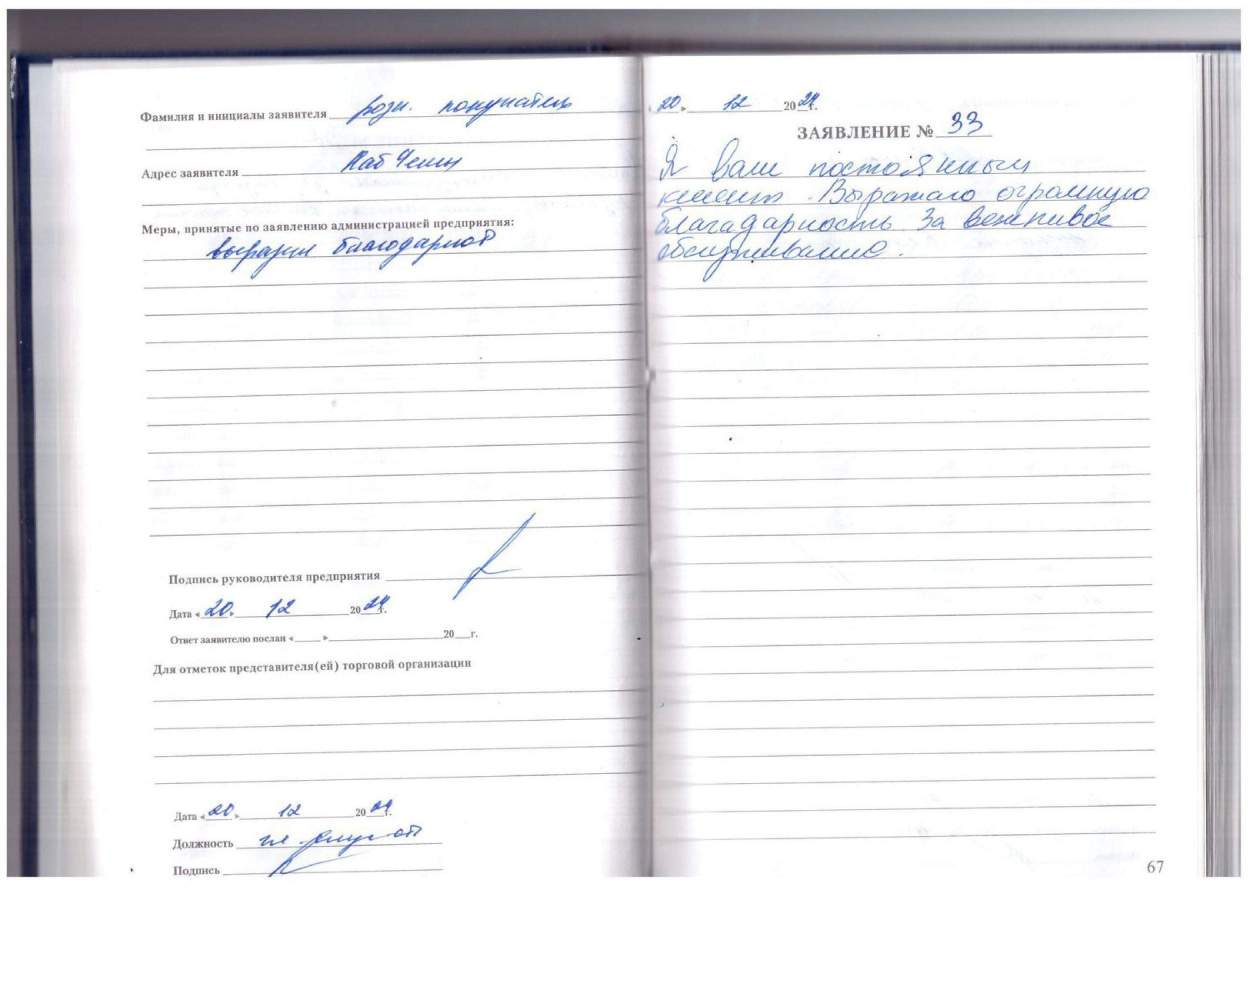 Фамилия и инициалы заявителя розн. покупатель
Адрес заявителя Наб Челны
Меры, принятые по заявлению администрацией предприятия:
выразил благодарност
Подпись руководителя предприятия
Дата «20» 12 2024 г.
Ответ заявителю послан « » 20 г.
Для отметок представителя(ей) торговой организации
Дата «20» 12 2024 г.
Должность
Подпись
20 » 12 2024 г.
ЗАЯВЛЕНИЕ № 33
Я ваш постоянный
клиент. Выражаю огромную
благадарность За вежливое
обслуживание.
67